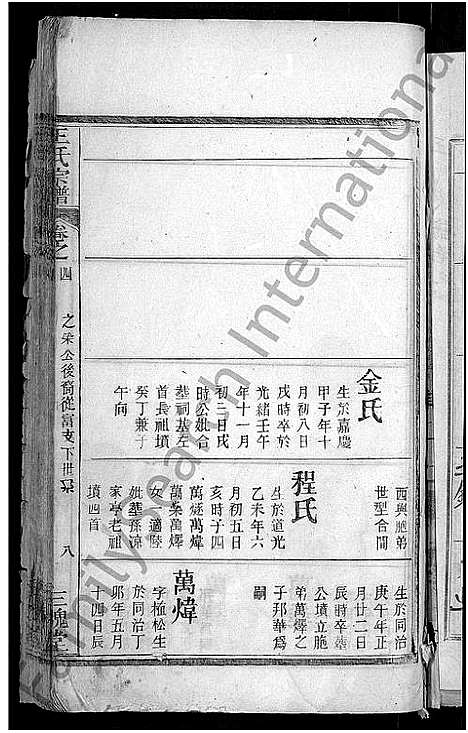 王氏宗譜
卷之四
之榮公後裔從富支下世系
八
三槐堂
金氏
生於嘉慶
甲子年十
月初八日
戌時卒於
光緒壬午
年十一月
初三日戌
時公妣合
墓祠基左
首長祖墳
癸丁兼子
午向
西與胞弟
世型合間
程氏
生於道光
乙未年六
月初五日
亥時子四
萬燧萬煒
萬榮萬燡
女一適陸
妣葬孫涼
家亭老祖
墳四首
生於同治
庚午年正
月廿二日
辰時卒葬
公墳立脆
弟萬燡之
子邦華爲
嗣
萬煒
字極松生
於同治丁
卯年五月
十四日辰
Familysearch International